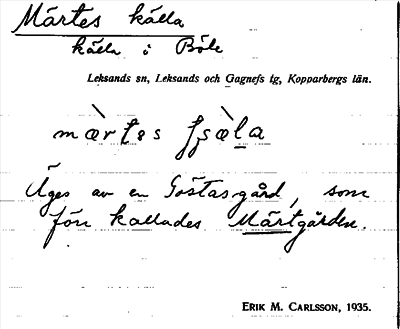 Märtes källa
källa i Böle
Leksands sn, Leksands och Gagnefs tg, Kopparbergs län.
mæ̀rtes ʃʂæ̀la
Äges av en Göstasgård, som
förr kallades Märtgården.
ERIK M. CARLSSON, 1935.